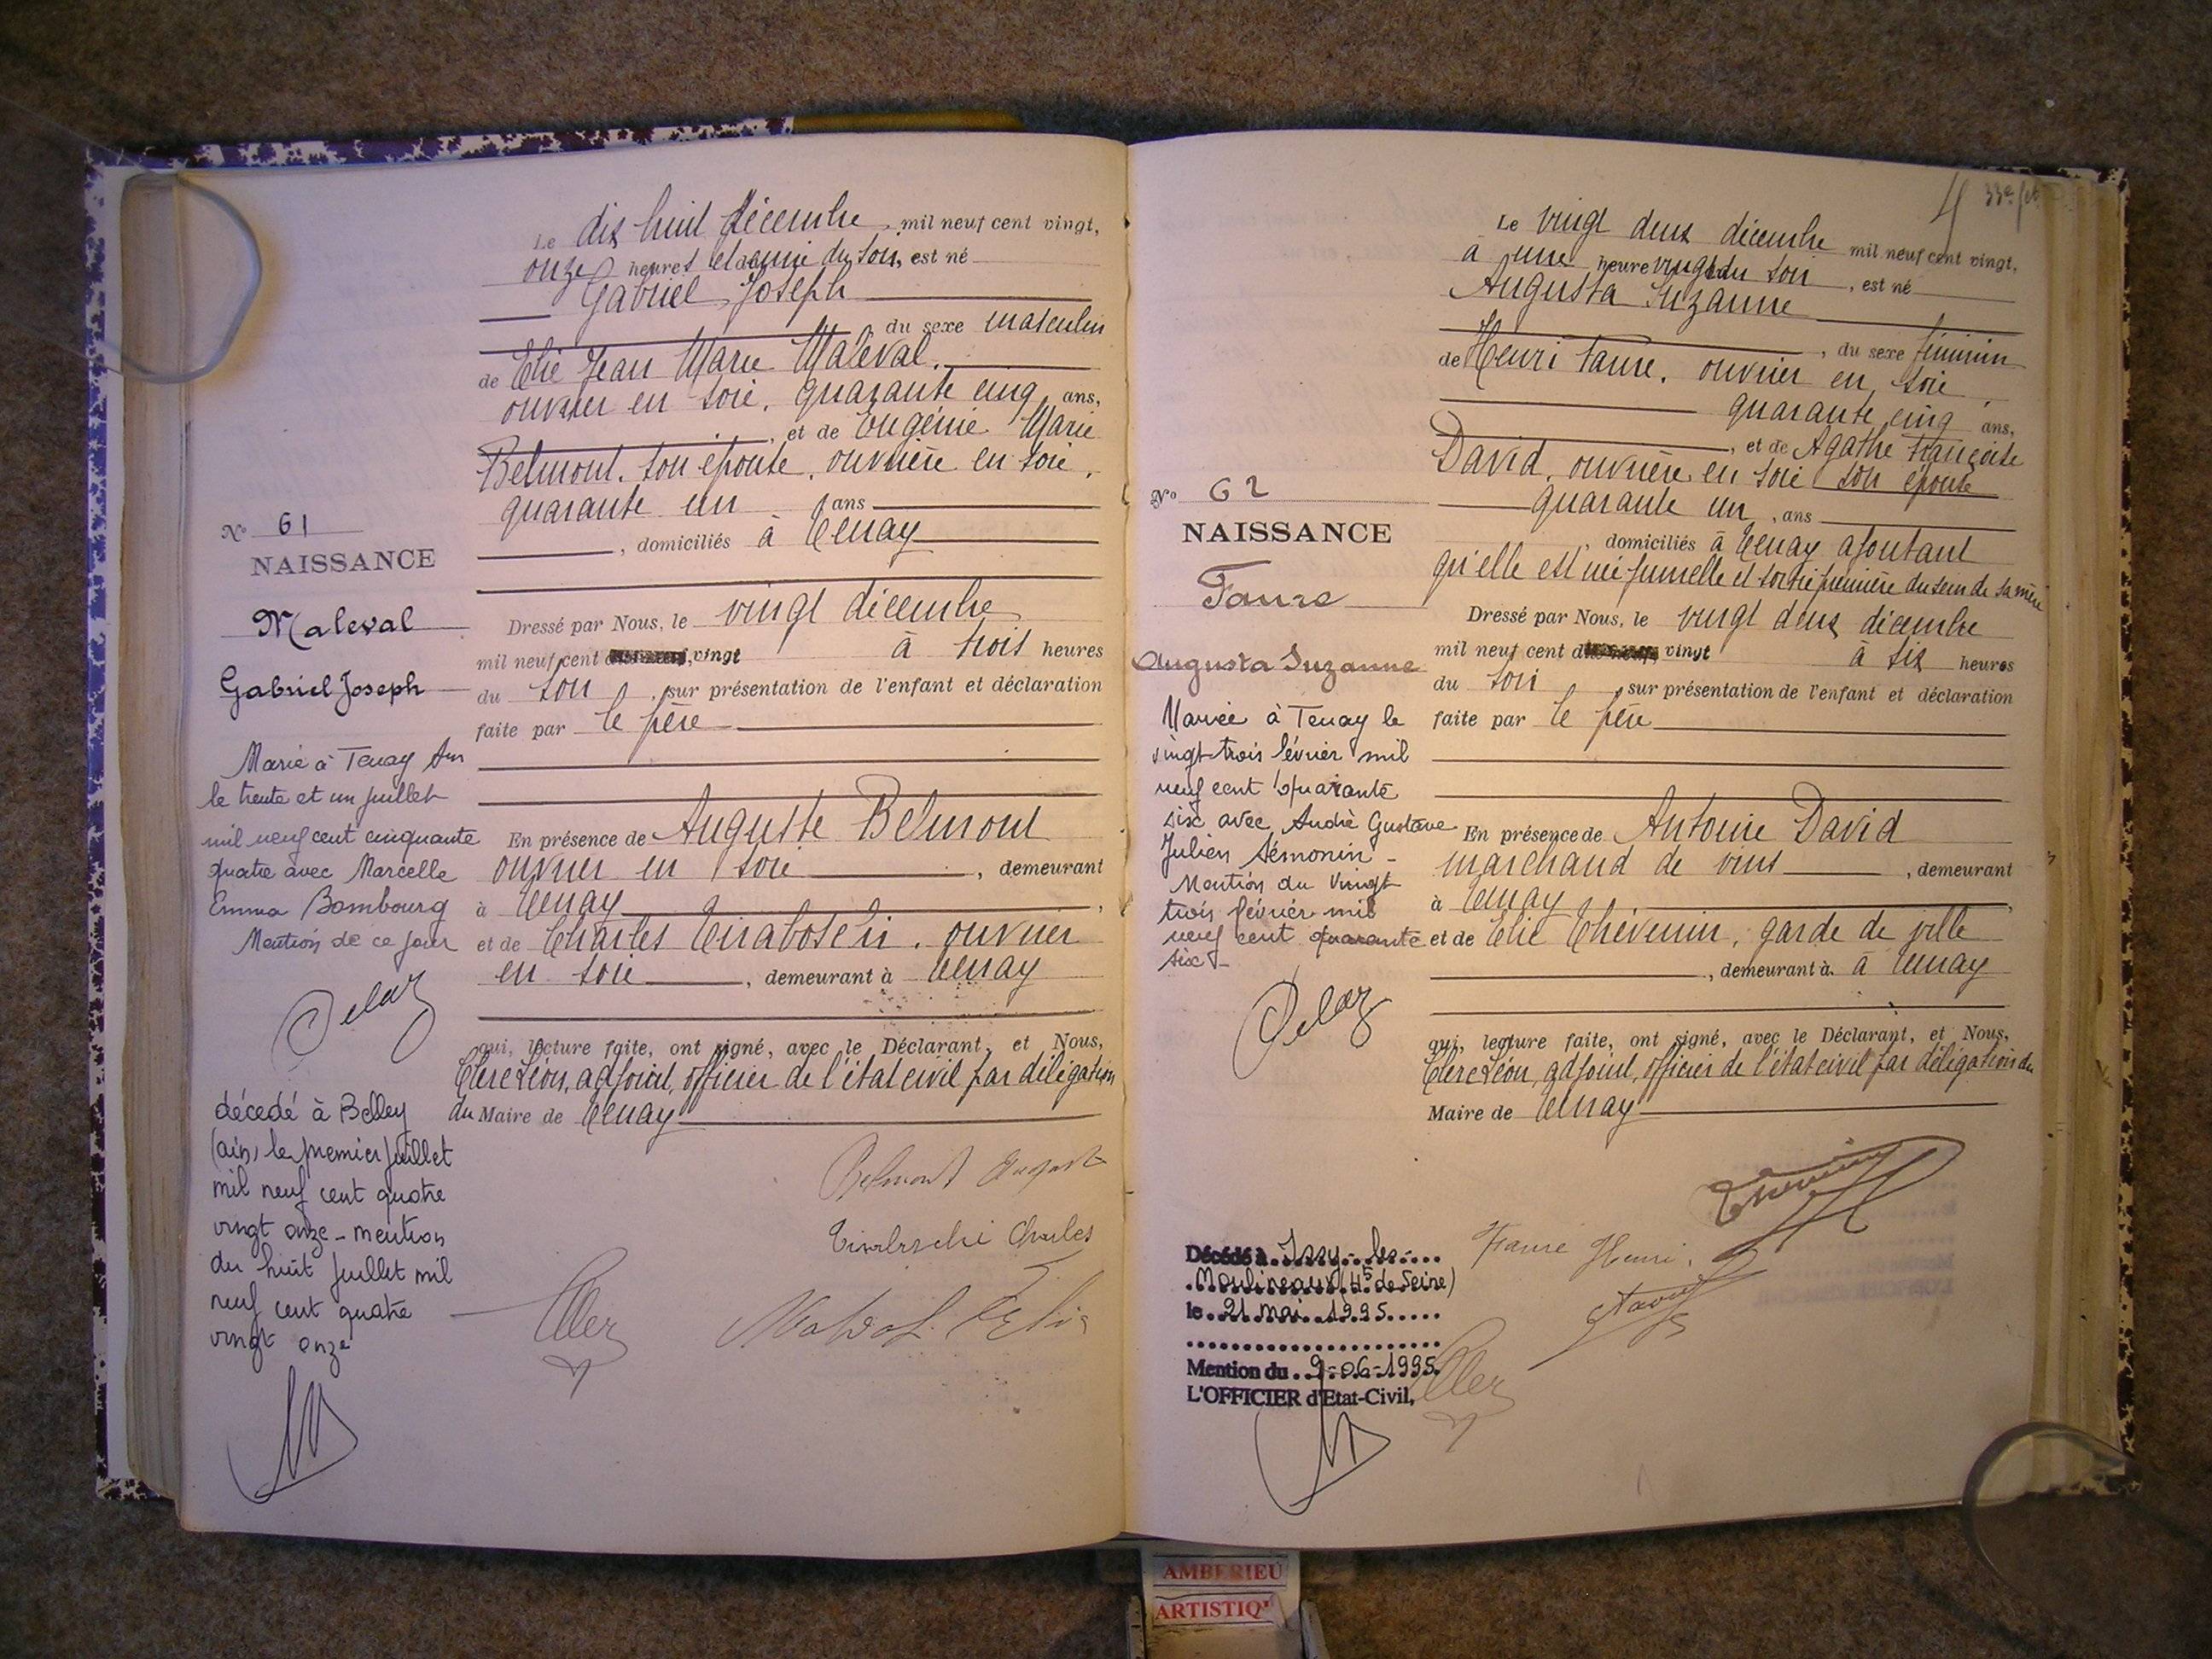 Le dix huit décembre mil neuf cent vingt,
onze heures et demie du soir, est né
Gabriel Joseph
du sexe masculin
de Elie Jean Marie Maleval.
ouvrier en soie, quarante cinq ans,
et de Eugénie Marie
Belmont, son épouse, ouvrière en soie,
quarante un ans
, domiciliés à Tenay
No 61
NAISSANCE
Maleval
Gabriel Joseph
Dressé par Nous, le vingt décembre
mil neuf cent vingt à trois heures
du soir, sur présentation de l'enfant et déclaration
faite par le père
Marié à Tenay Ain
le trente et un juillet
mil neuf cent cinquante
quatre avec Marcelle
Emma Bombourg
Mention de ce jour
Delaz
En présence de Auguste Belmont
ouvrier en soie, demeurant
à Tenay,
et de Charles Tiraboschi, ouvrier
en soie, demeurant à Tenay
qui, lecture faite, ont signé, avec le Déclarant, et Nous,
Clerc Léon, adjoint, officier de l'état civil par délégation
du Maire de Tenay
décédé à Belley
(ain) le premier juillet
mil neuf cent quatre
vingt onze - mention
du huit juillet mil
neuf cent quatre
vingt onze
Belmont August
Tiraboschi Charles
Clerc
Maleval Elie
33e fet
Le vingt deux décembre mil neuf cent vingt,
à une heure vingt du soir, est né
Augusta Suzanne
, du sexe féminin
de Henri Faure, ouvrier en soie,
quarante cinq ans,
, et de Agathe Françoise
David, ouvrière en soie son épouse
quarante un, ans
, domiciliés à Tenay ajoutant
qu'elle est née jumelle et sortie première du sein de sa mère
No 62
NAISSANCE
Faure
Augusta Suzanne
Dressé par Nous, le vingt deux décembre
mil neuf cent vingt à six heures
du soir, sur présentation de l'enfant et déclaration
faite par le père
Mariée à Tenay le
vingt trois février mil
neuf cent quarante
six avec André Gustave
Julien Sémonin -
Mention du vingt
trois février mil
neuf cent quarante
six -
Delaz
En présence de Antoine David
marchand de vins, demeurant
à Tenay,
et de Elie Thévenin, garde de ville
, demeurant à à Tenay
qui, lecture faite, ont signé, avec le Déclarant, et Nous,
Clerc Léon, adjoint, officier de l'état civil par délégation du
Maire de Tenay
Thévenin
Faure Henri.
David
Clerc
Décédé à Issy-les-
Moulineaux (Hts de Seine)
le 21 mai 1995
Mention du 9-06-1995
L'OFFICIER d'Etat-Civil,
AMBERIEU
ARTISTIQ'